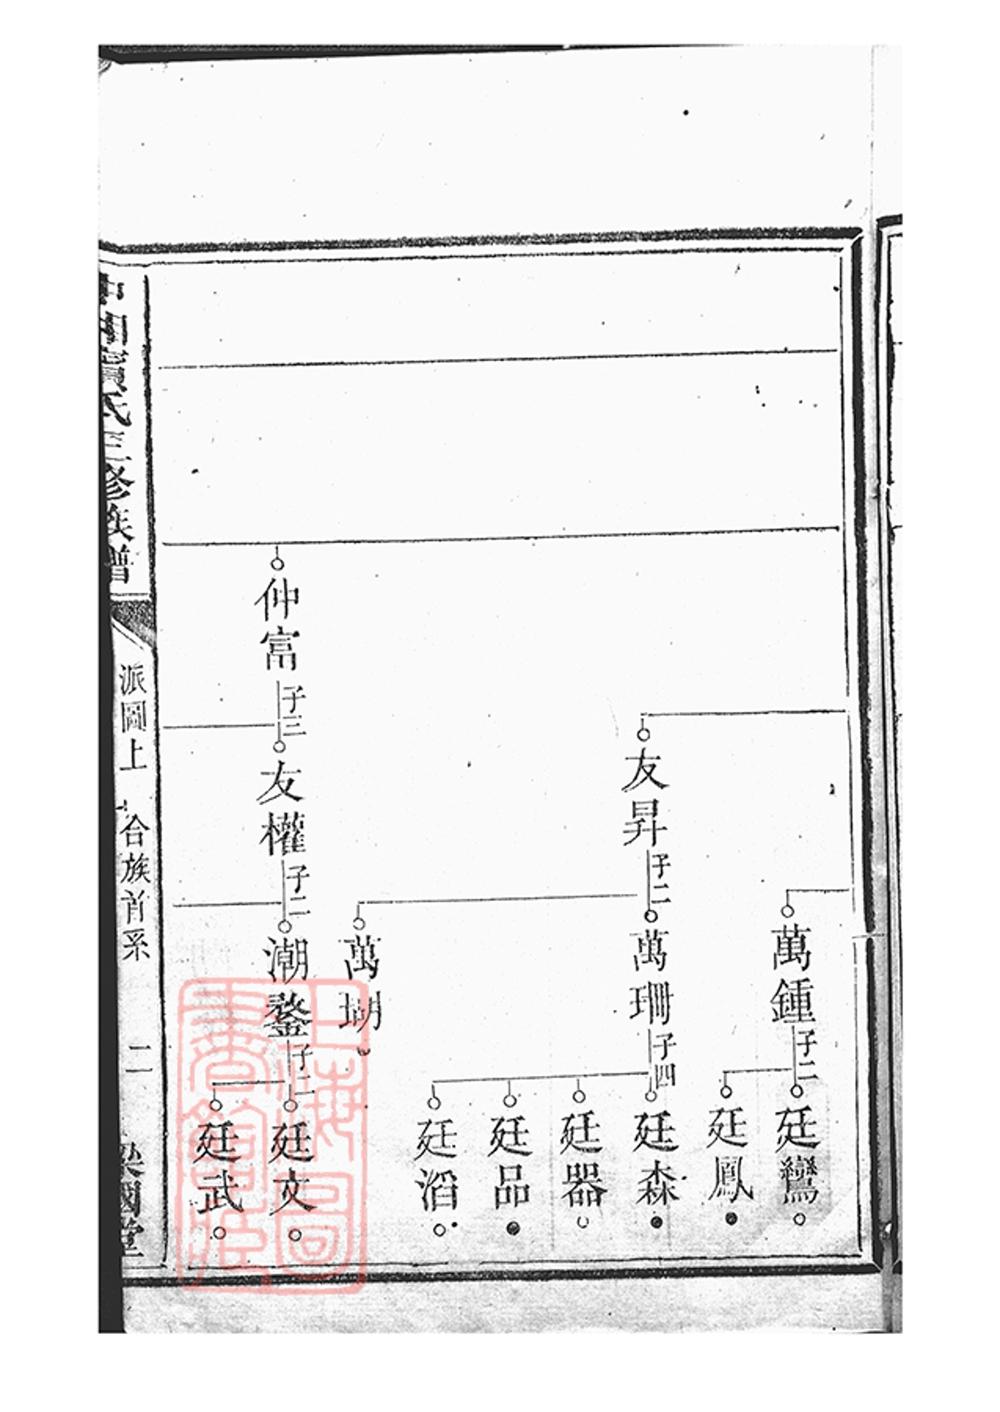 萬鍾
子二
廷鸞
廷鳳
友昇
子二
萬珊
子四
廷森
廷器
廷品
廷滔
萬瑚
仲富
子三
友權
子二
潮鍪
子二
廷文
廷武
氏三修族譜
派圖上
合族首系
二
國堂
上海圖書館藏